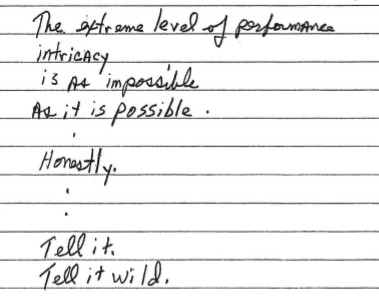 The extreme level of performance
intricacy
is as impossible
As it is possible.
.
Honestly.
.
.
Tell it.
Tell it wild.